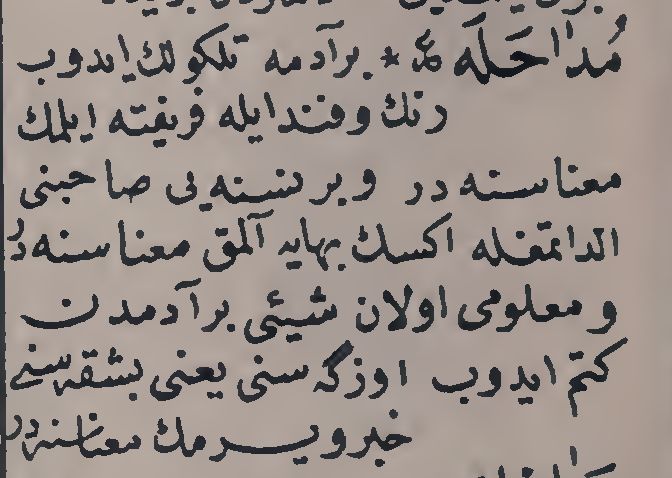 مُدَاحَلَه * برآدمه تلكولك ايدوب
رنك وفند ايله فريفته ايلمك
معناسنه در و بر نسنه يى صاحبنى
الدا تمغله اكسك بهايه آلمق معناسنه در
و معلومى اولان شيئى برآدمدن
كتم ايدوب اوزكه سنى يعنى بشقه سنے
خبر ويرمك معناسنه در